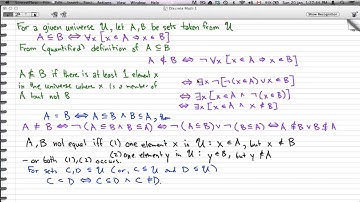 Discrete Math 1
Sun 20 Jan 3:12:44 PM
For a given universe 𝒰, let A, B be sets taken from 𝒰
A ⊆ B ⇔ ∀x [x ∈ A ⇒ x ∈ B]
From (quantified) definition of A ⊆ B
A ⊈ B ⇔ ¬∀x [x ∈ A ⇒ x ∈ B]
A ⊈ B if there is at least 1 element x
in the universe where x is a member of
A but not B
⇔ ∃x ¬[¬(x ∈ A) ∨ x ∈ B]
⇔ ∃x [x ∈ A ∧ ¬(x ∈ B)]
⇔ ∃x [x ∈ A ∧ x ∉ B]
A = B ⇔ A ⊆ B ∧ B ⊆ A, then
A ≠ B ⇔ ¬(A ⊆ B ∧ B ⊆ A) ⇔ ¬(A ⊆ B) ∨ ¬(B ⊆ A) ⇔ A ⊈ B ∨ B ⊈ A
A, B not equal iff (1) one element x in 𝒰 : x ∈ A, but x ∉ B
(2) one element y in 𝒰 : y ∈ B, but y ∉ A
- or both (1), (2) occurs.
For sets C, D ⊆ 𝒰 (or, C ⊆ 𝒰 and D ⊆ 𝒰)
C ⊂ D ⇔ C ⊆ D ∧ C ≠ D.